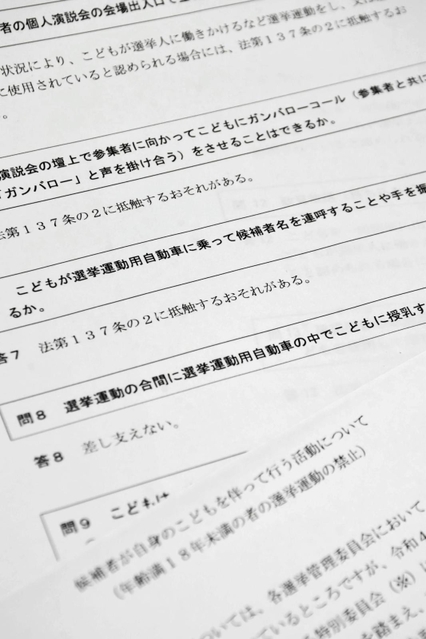 者の個人演説会の会場出入口で
状況により、こどもが選挙人に働きかけるなど選挙運動をし、又は
に使用されていると認められる場合には、法第１３７条の２に抵触するお
。
演説会の壇上で参集者に向かってこどもにガンバローコール（参集者と共に
「ガンバロー」と声を掛け合う）をさせることはできるか。
法第１３７条の２に抵触するおそれがある。
こどもが選挙運動用自動車に乗って候補者名を連呼することや手を振
るか。
答７　法第１３７条の２に抵触するおそれがある。
問８　選挙運動の合間に選挙運動用自動車の中でこどもに授乳す
答８　差し支えない。
問９　こどもは
候補者が自身のこどもを伴って行う活動について
（年齢満１８年未満の者の選挙運動の禁止）
ついては、各選挙管理委員会において
ているところですが、令和４
特別委員会（※）に
踏まえ、